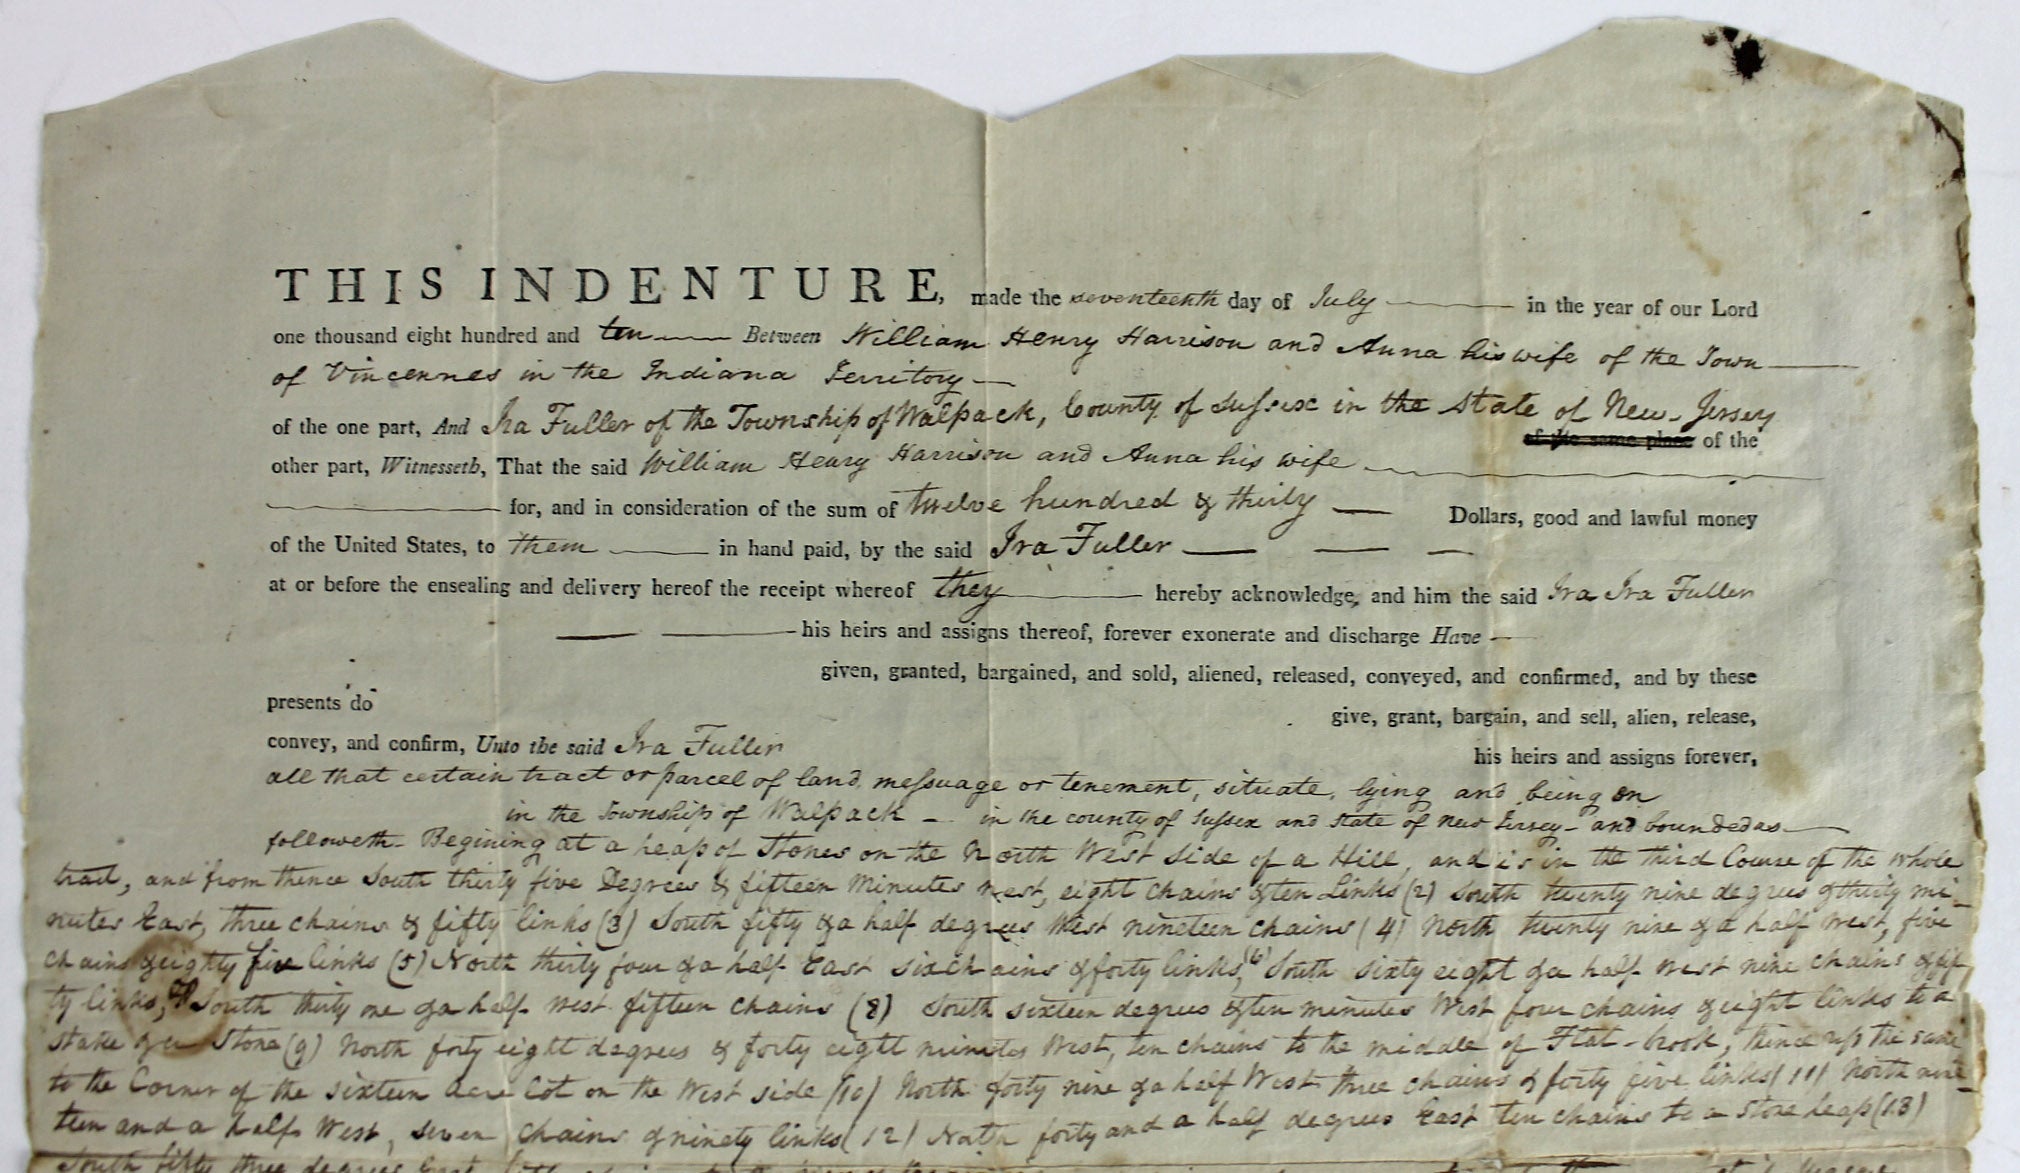 THIS INDENTURE, made the seventeenth day of July in the year of our Lord
one thousand eight hundred and ten Between William Henry Harrison and Anna his wife of the Town
of Vincennes in the Indiana Territory
of the one part, And Ira Fuller of the Township of Walpack, County of Sussex in the State of New-Jersey
of the same place of the
other part, Witnesseth, That the said William Henry Harrison and Anna his wife
for, and in consideration of the sum of twelve hundred & thirty Dollars, good and lawful money
of the United States, to them in hand paid, by the said Ira Fuller
at or before the ensealing and delivery hereof the receipt whereof they hereby acknowledge, and him the said Ira Ira Fuller
his heirs and assigns thereof, forever exonerate and discharge Have
given, granted, bargained, and sold, aliened, released, conveyed, and confirmed, and by these
presents do
give, grant, bargain, and sell, alien, release,
convey, and confirm, Unto the said Ira Fuller
his heirs and assigns forever,
all that certain tract or parcel of land, messuage or tenement, situate, lying and being on
in the Township of Walpack - in the county of Sussex and State of New Jersey - and bounded as
followeth - Begining at a heap of Stones on the North West Side of a Hill, and is in the third Course of the whole
tract, and from thence South thirty five Degrees & fifteen Minutes west, eight chains & ten Links (2) South twenty nine degrees & thirty mi-
nutes East, three chains & fifty links (3) South fifty & a half degrees West nineteen chains (4) North twenty nine & a half west, five
chains & eighty five links (5) North thirty four & a half East six chains & forty links, (6) South sixty eight & a half west nine chains & fif
ty links, (7) South thirty one & a half west fifteen chains (8) South sixteen degrees & ten minutes West four chains & eight links to a
stake & Stone (9) North forty eight degrees & forty eight minutes West, ten chains to the middle of Flat-brook, thence up the same
to the Corner of the sixteen acre lot on the West side (10) North forty nine & a half West three chains & forty five links (11) North nine-
teen and a half West, seven chains & ninety links (12) North forty and a half degrees East ten chains to a stone heap (13)
South fifty three degrees East